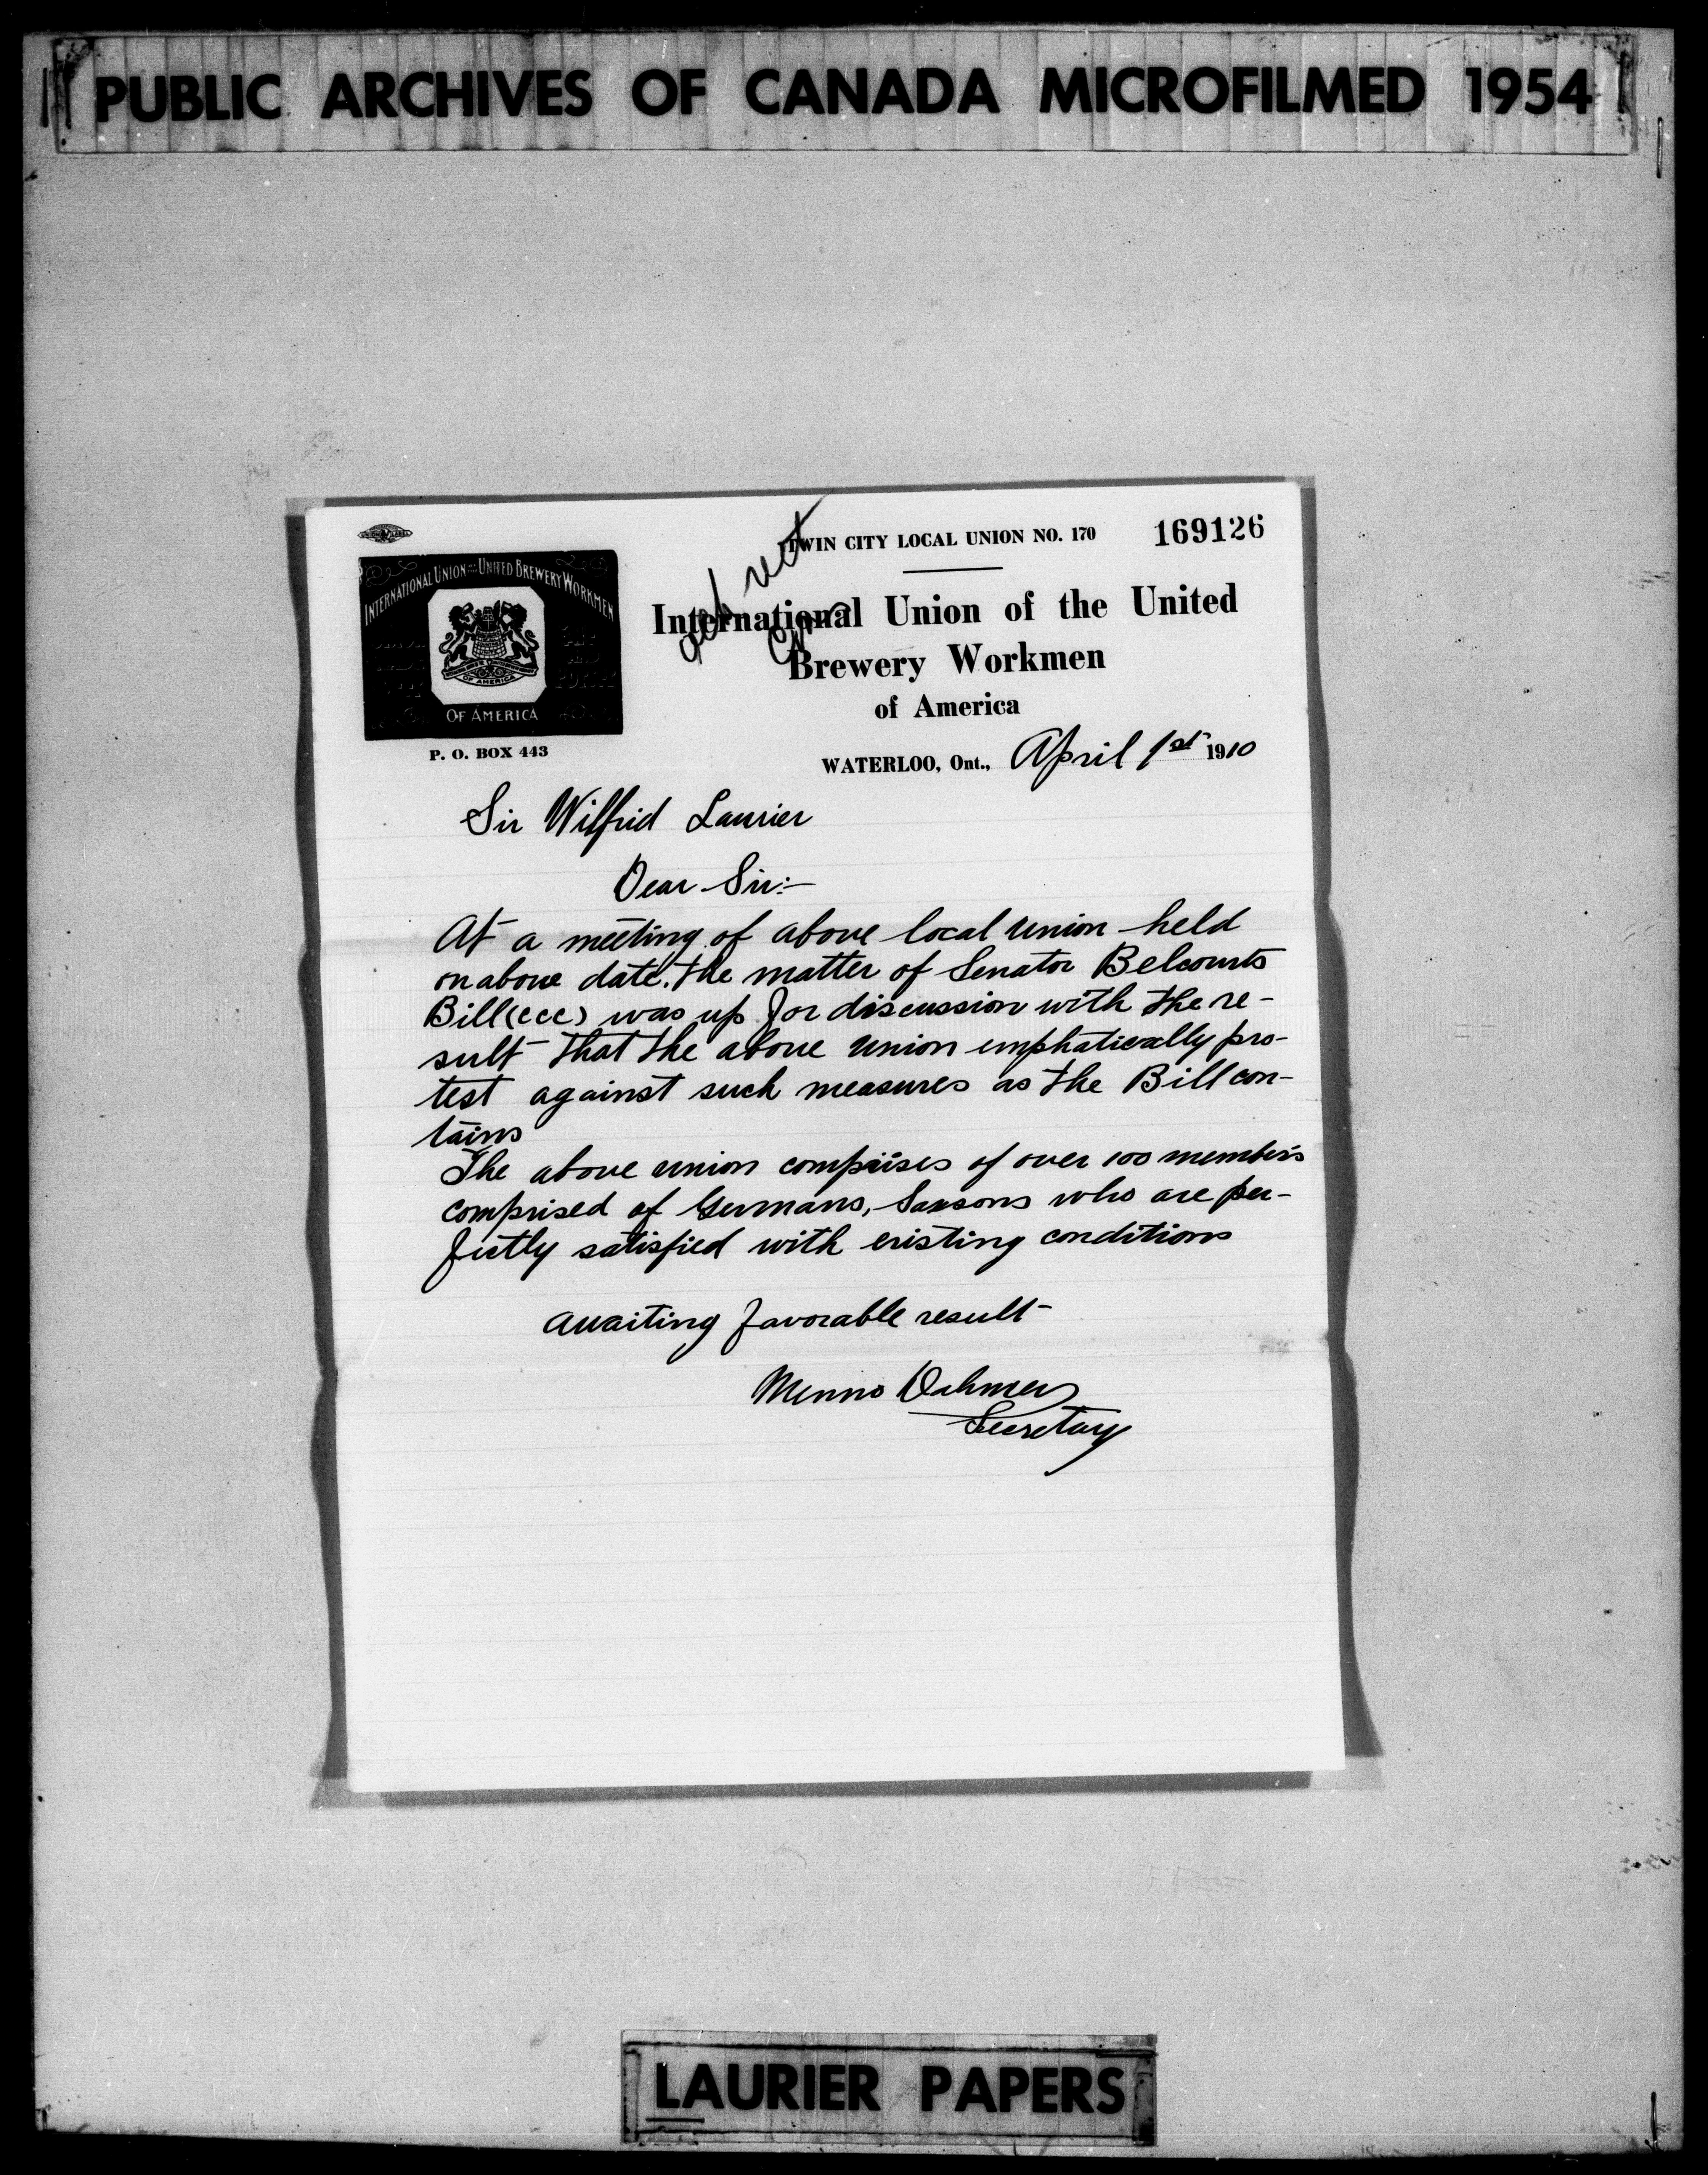 PUBLIC ARCHIVES OF CANADA MICROFILMED 1954
TWIN CITY LOCAL UNION NO. 170
169126
INTERNATIONAL UNION OF UNITED BREWERY WORKMEN
OF AMERICA
OF AMERICA
International Union of the United
Brewery Workmen
of America
P. O. BOX 443
WATERLOO, Ont., April 1st 1910
Sir Wilfrid Laurier
Dear Sir:-
At a meeting of above local union held
on above date, the matter of Senator Belcourts
Bill (ccc) was up for discussion with the re-
sult that the above union emphatically pro-
test against such measures as the Bill con-
tains
The above union comprises of over 100 members
comprised of Germans, Saxsons who are per-
fictly satisfied with existing conditions
Awaiting favorable result
Menno
Secretary
LAURIER PAPERS